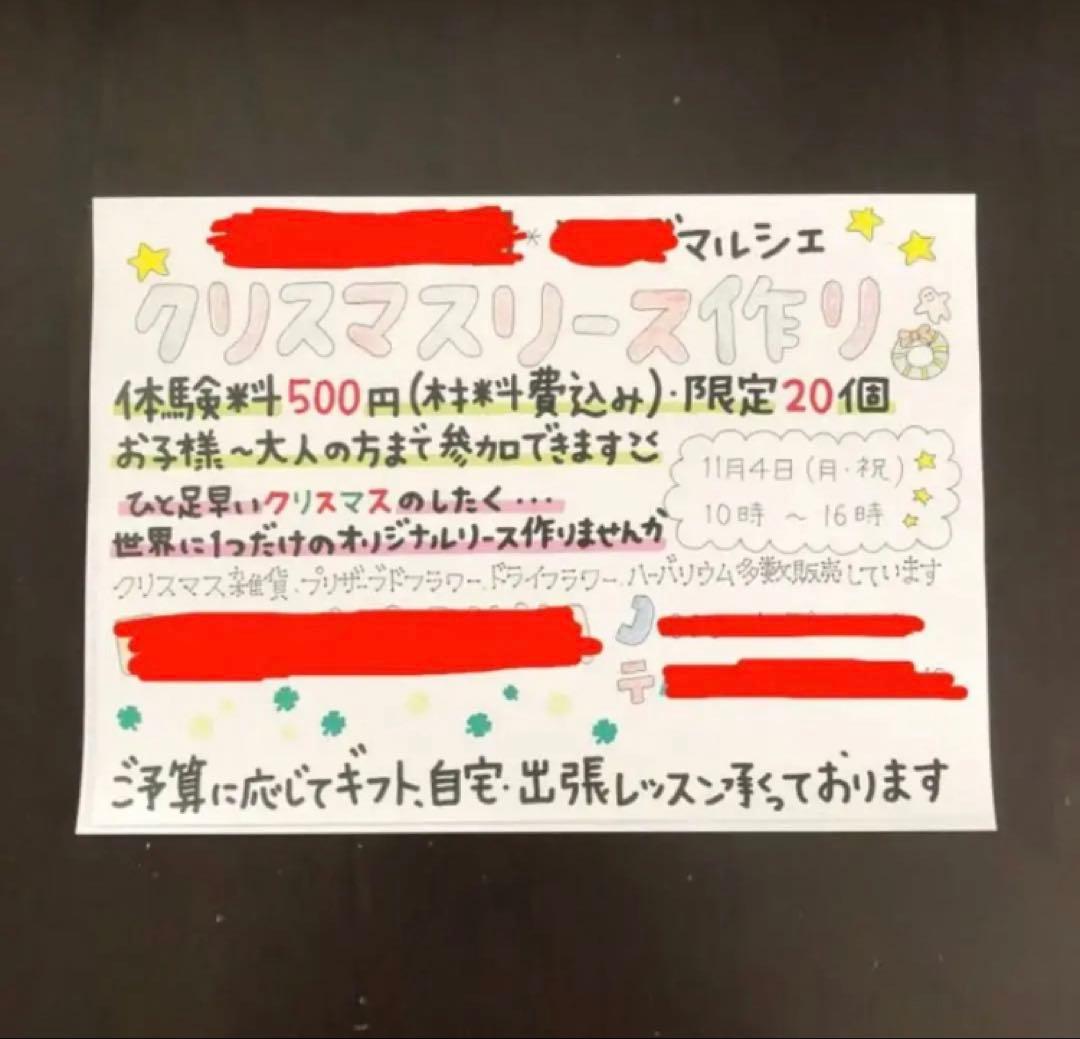 マルシェ
クリスマスリース作り
体験料500円(材料費込み)・限定20個
お子様~大人の方まで参加できます
ひと足早いクリスマスのしたく・・・
世界に1つだけのオリジナルリース作りませんか
11月4日(月・祝)
10時 ~ 16時
クリスマス雑貨、プリザーブドフラワー、ドライフラワー、ハーバリウム多数販売しています
〒
ご予算に応じてギフト、自宅・出張レッスン承っております